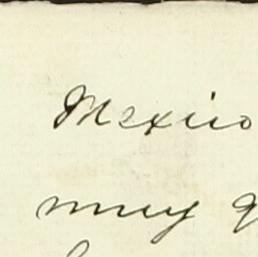 Mexico
muy